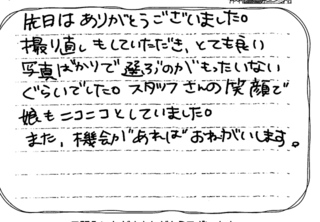 先日はありがとうございました。
撮り直しもしていただき、とても良い
写真ばかりで選ぶのがもったいない
ぐらいでした。スタッフさんの笑顔で
娘もニコニコとしていました。
また、機会があればおねがいします。